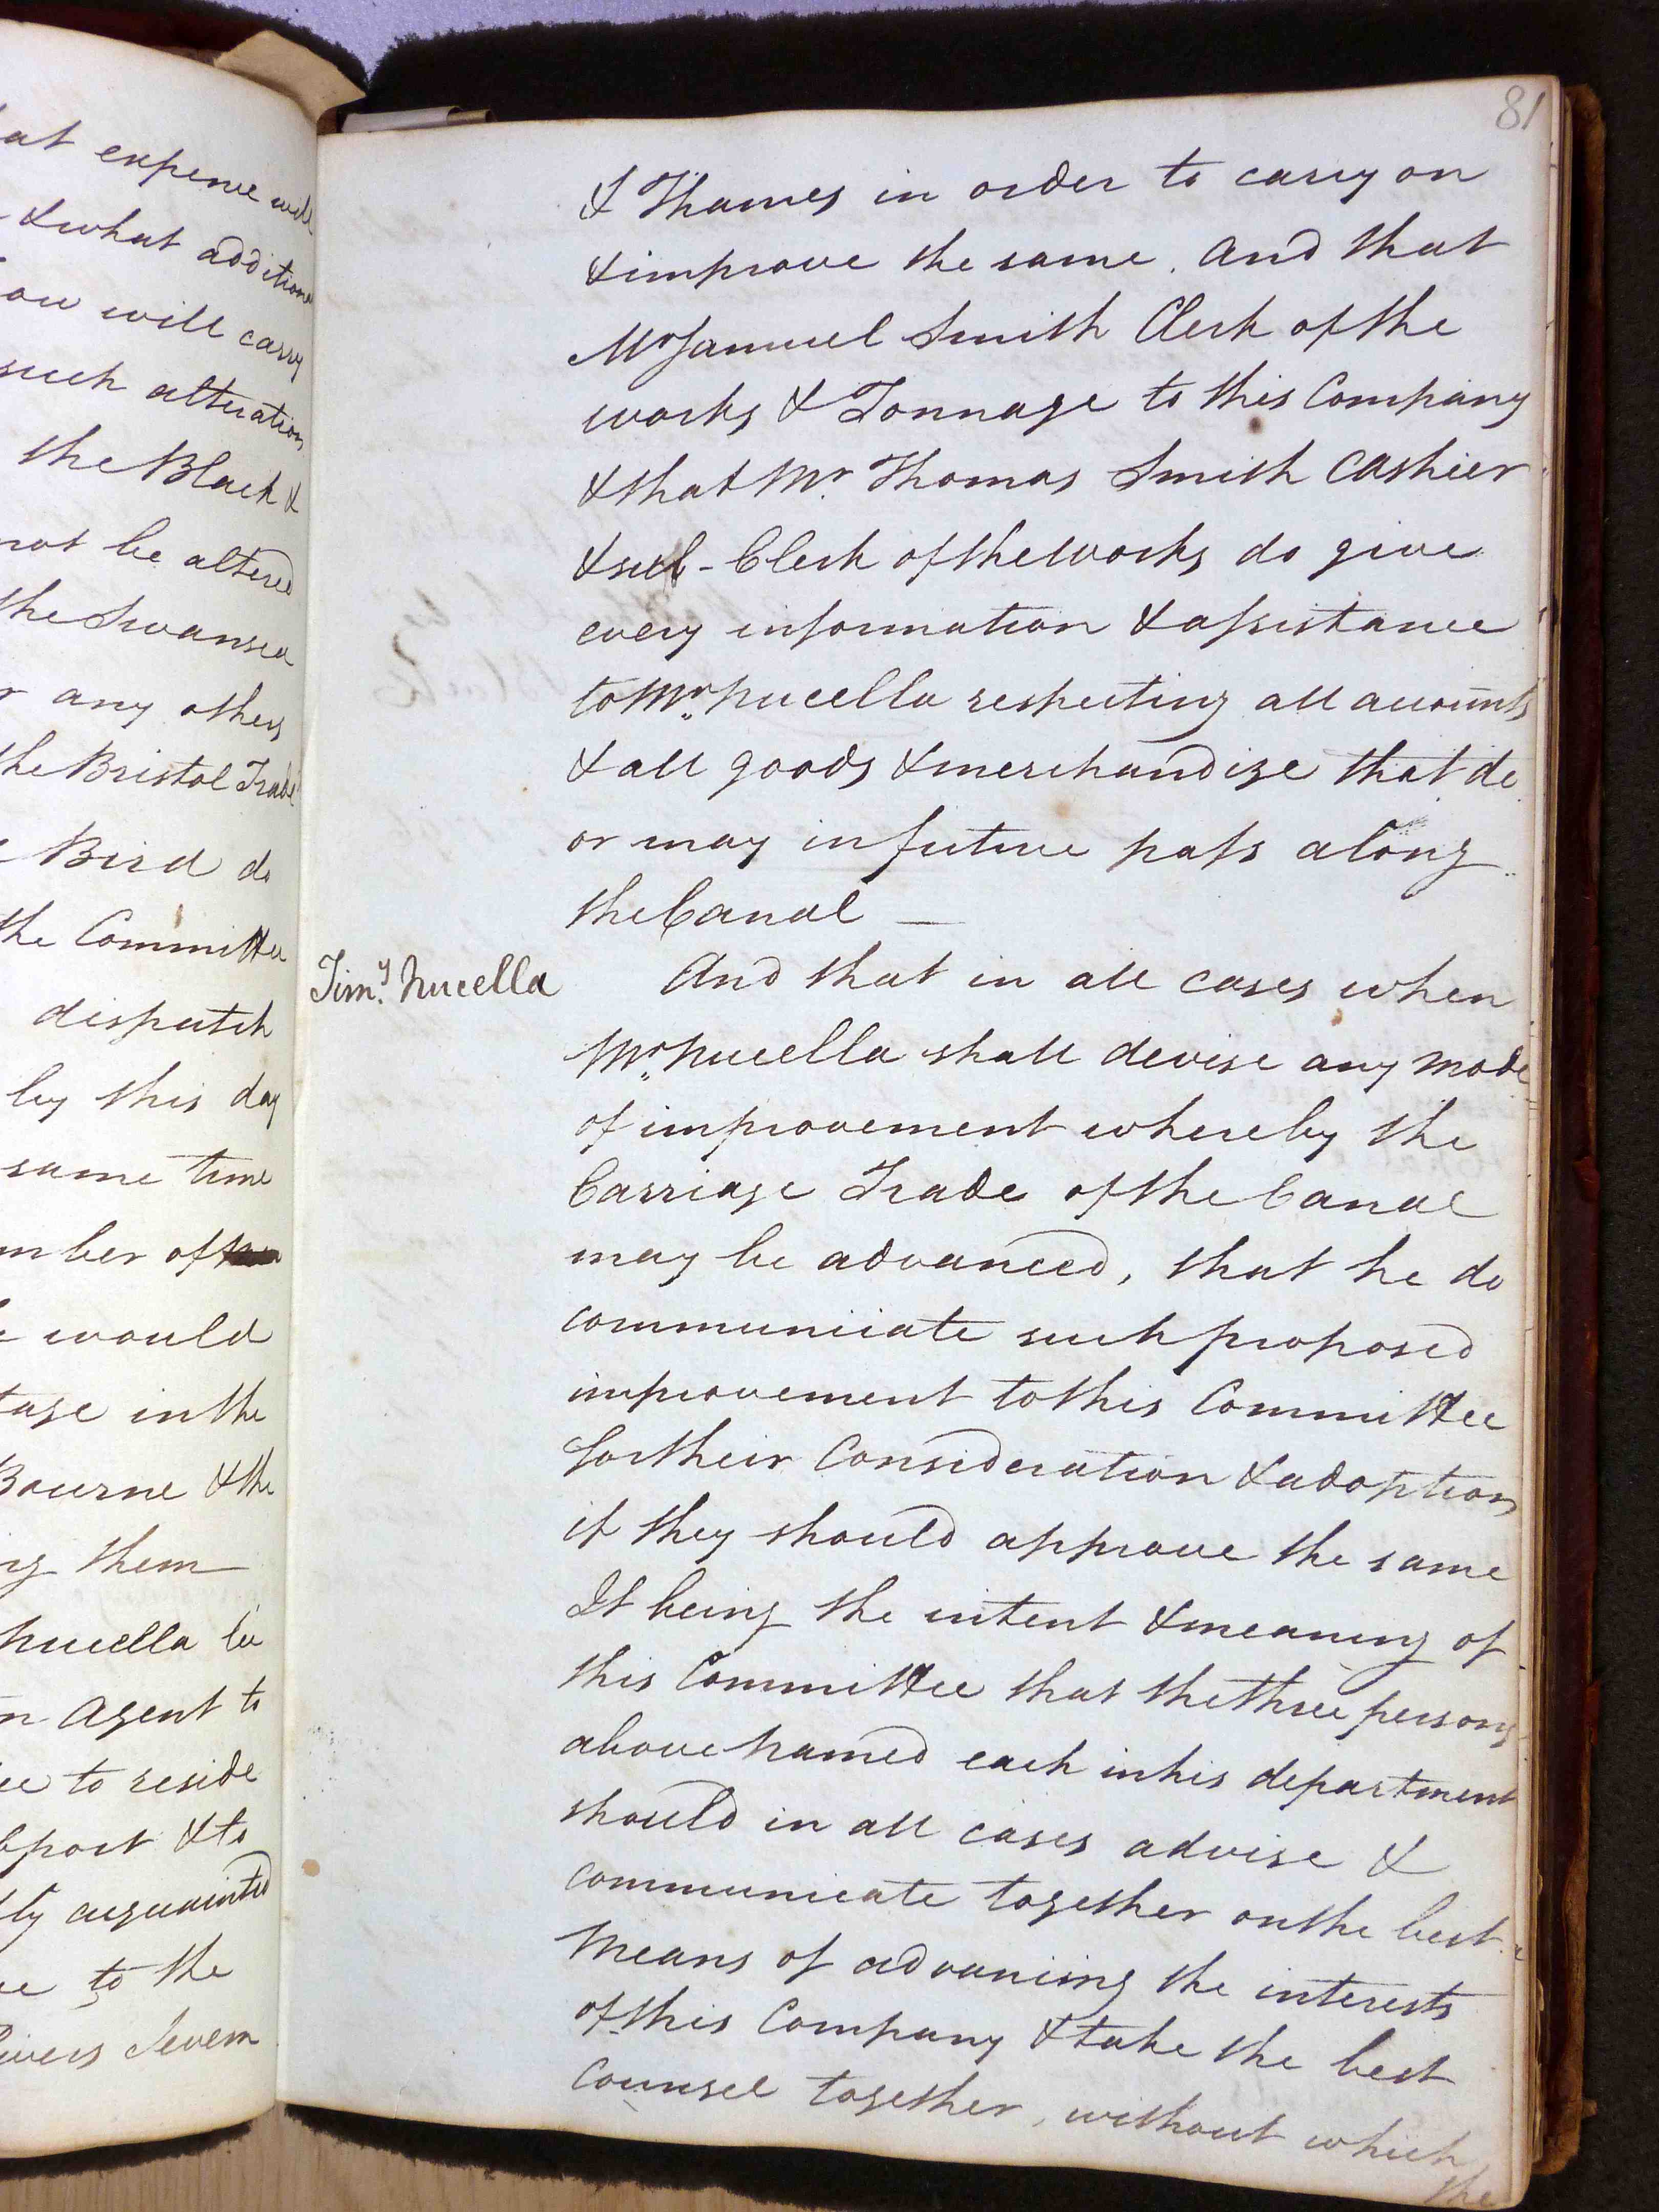 at expence will
& what additional
ou will carry
such alteration
the Black &
not be altered
the Swansea
r any others
the Bristol Trade
Bird do
the Committee
dispatch
by this day
same time
mber of
would
tage in the
Bourne & the
ng them
Nucella be
n Agent to
ee to reside
port & to
tly acquainted
ee to the
ivers Severn
81
& Thames in order to carry on
& improve the same. And that
Mr Samuel Smith Clerk of the
works & Tonnage to this Company
& that Mr Thomas Smith Cashier
& sub-Clerk of the works do give
every information & assistance
to Mr Nucella respecting all accounts
& all goods & merchandize that do
or may in future pass along
the Canal —
Timy. Nucella
And that in all cases when
Mr Nucella shall devise any mode
of improvement whereby the
Carriage Trade of the Canal
may be advanced, that he do
communicate such proposed
improvement to this Committee
for their Consideration & adoption
if they should approve the same
It being the intent & meaning of
this Committee that the three persons
above named each in his department
should in all cases advise &
communicate together on the best
means of advancing the interests
of this Company & take the best
Counsel together, without which
the